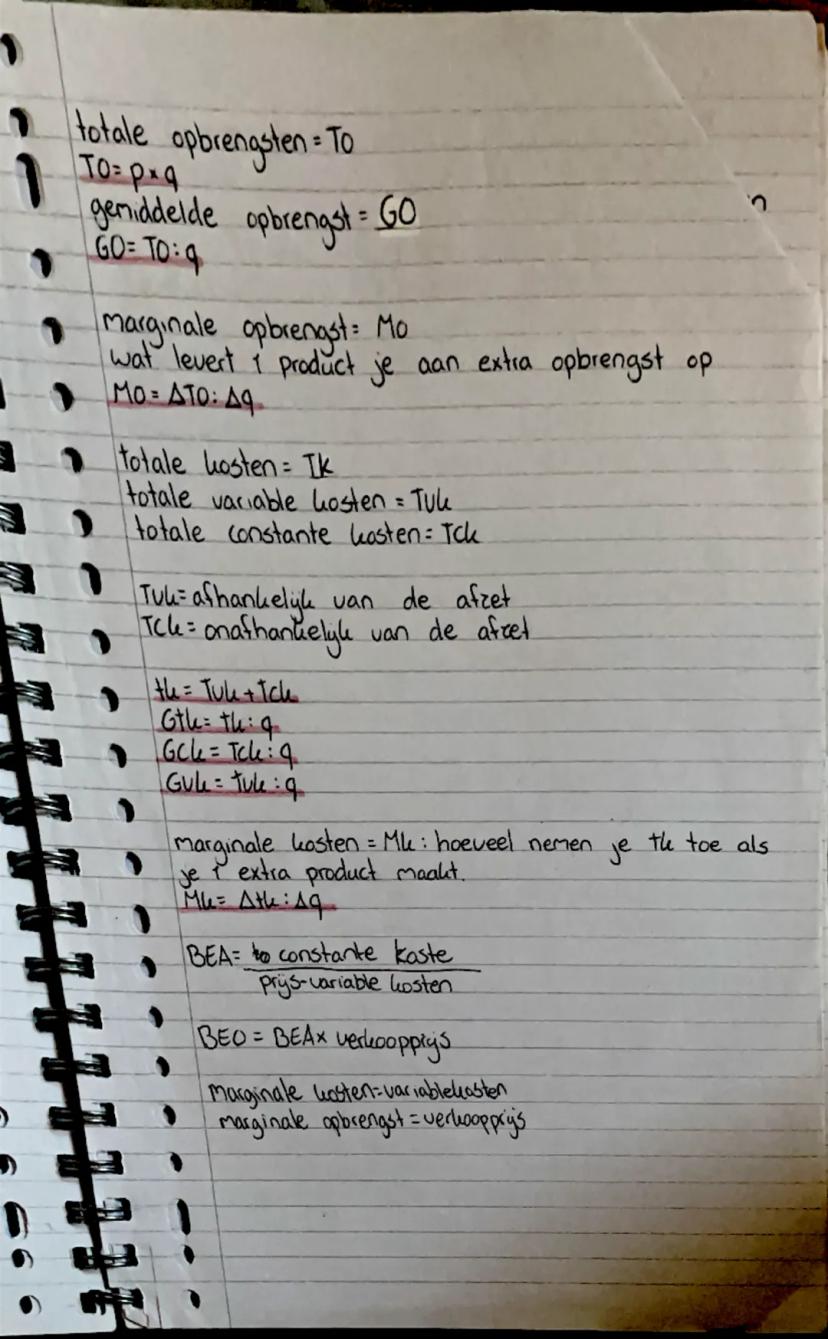 totale opbrengsten = TO
TO = p × q
gemiddelde opbrengst = GO
GO = TO : q
marginale opbrengst = MO
wat levert 1 product je aan extra opbrengst op
MO = ΔTO : Δq
totale kosten = TK
totale variable kosten = Tvk
totale constante kosten = Tck
Tvk = afhankelijk van de afzet
Tck = onafhankelijk van de afzet
tk = Tvk + Tck
Gtk = tk : q
Gck = Tck : q
Gvk = tvk : q
marginale kosten = Mk : hoeveel nemen je tk toe als
je 1 extra product maakt.
Mk = Δtk : Δq
BEA = constante koste
prijs-variable kosten
BEO = BEA x verkoopprijs
marginale kosten = variablekosten
marginale opbrengst = verkoopprijs